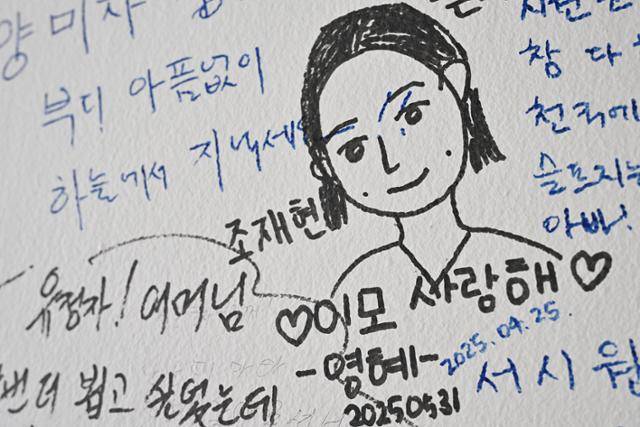 양 미자
부디 아픔없이
하늘에서 지내세요
창 다
천국에
슬프지
아빠!
조재현
유정자! 어머님
이모 사랑해
-영혜-
20250531
2025.04.25.
서시원
번 더 뵙고 싶었는데